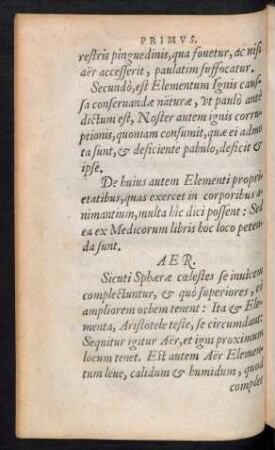 PRIMVS.
restris pinguedinis, qua fouetur, ac nisi
aër accesserit, paulatim suffocatur.
Secundò, est Elementum Ignis caus-
sa conseruandæ naturæ, vt paulò antè
dictum est, Noster autem ignis corru-
ptionis, quoniam consumit, quæ ei admo-
ta sunt, & deficiente pabulo, deficit &
ipse.
De huius autem Elementi propri-
etatibus, quas exercet in corporibus a-
nimantium, multa hîc dici possent: Sed
ea ex Medicorum libris hoc loco peten-
da sunt.
AER.
Sicuti Sphæræ cœlestes se inuicem
complectuntur, & quò superiores, eò
ampliorem orbem tenent: Ita & Ele-
menta, Aristotele teste, se circumdant:
Sequitur igitur Aër, et igni proximum
locum tenet. Est autem Aër Elemen-
tum leue, calidum & humidum, quod
complet